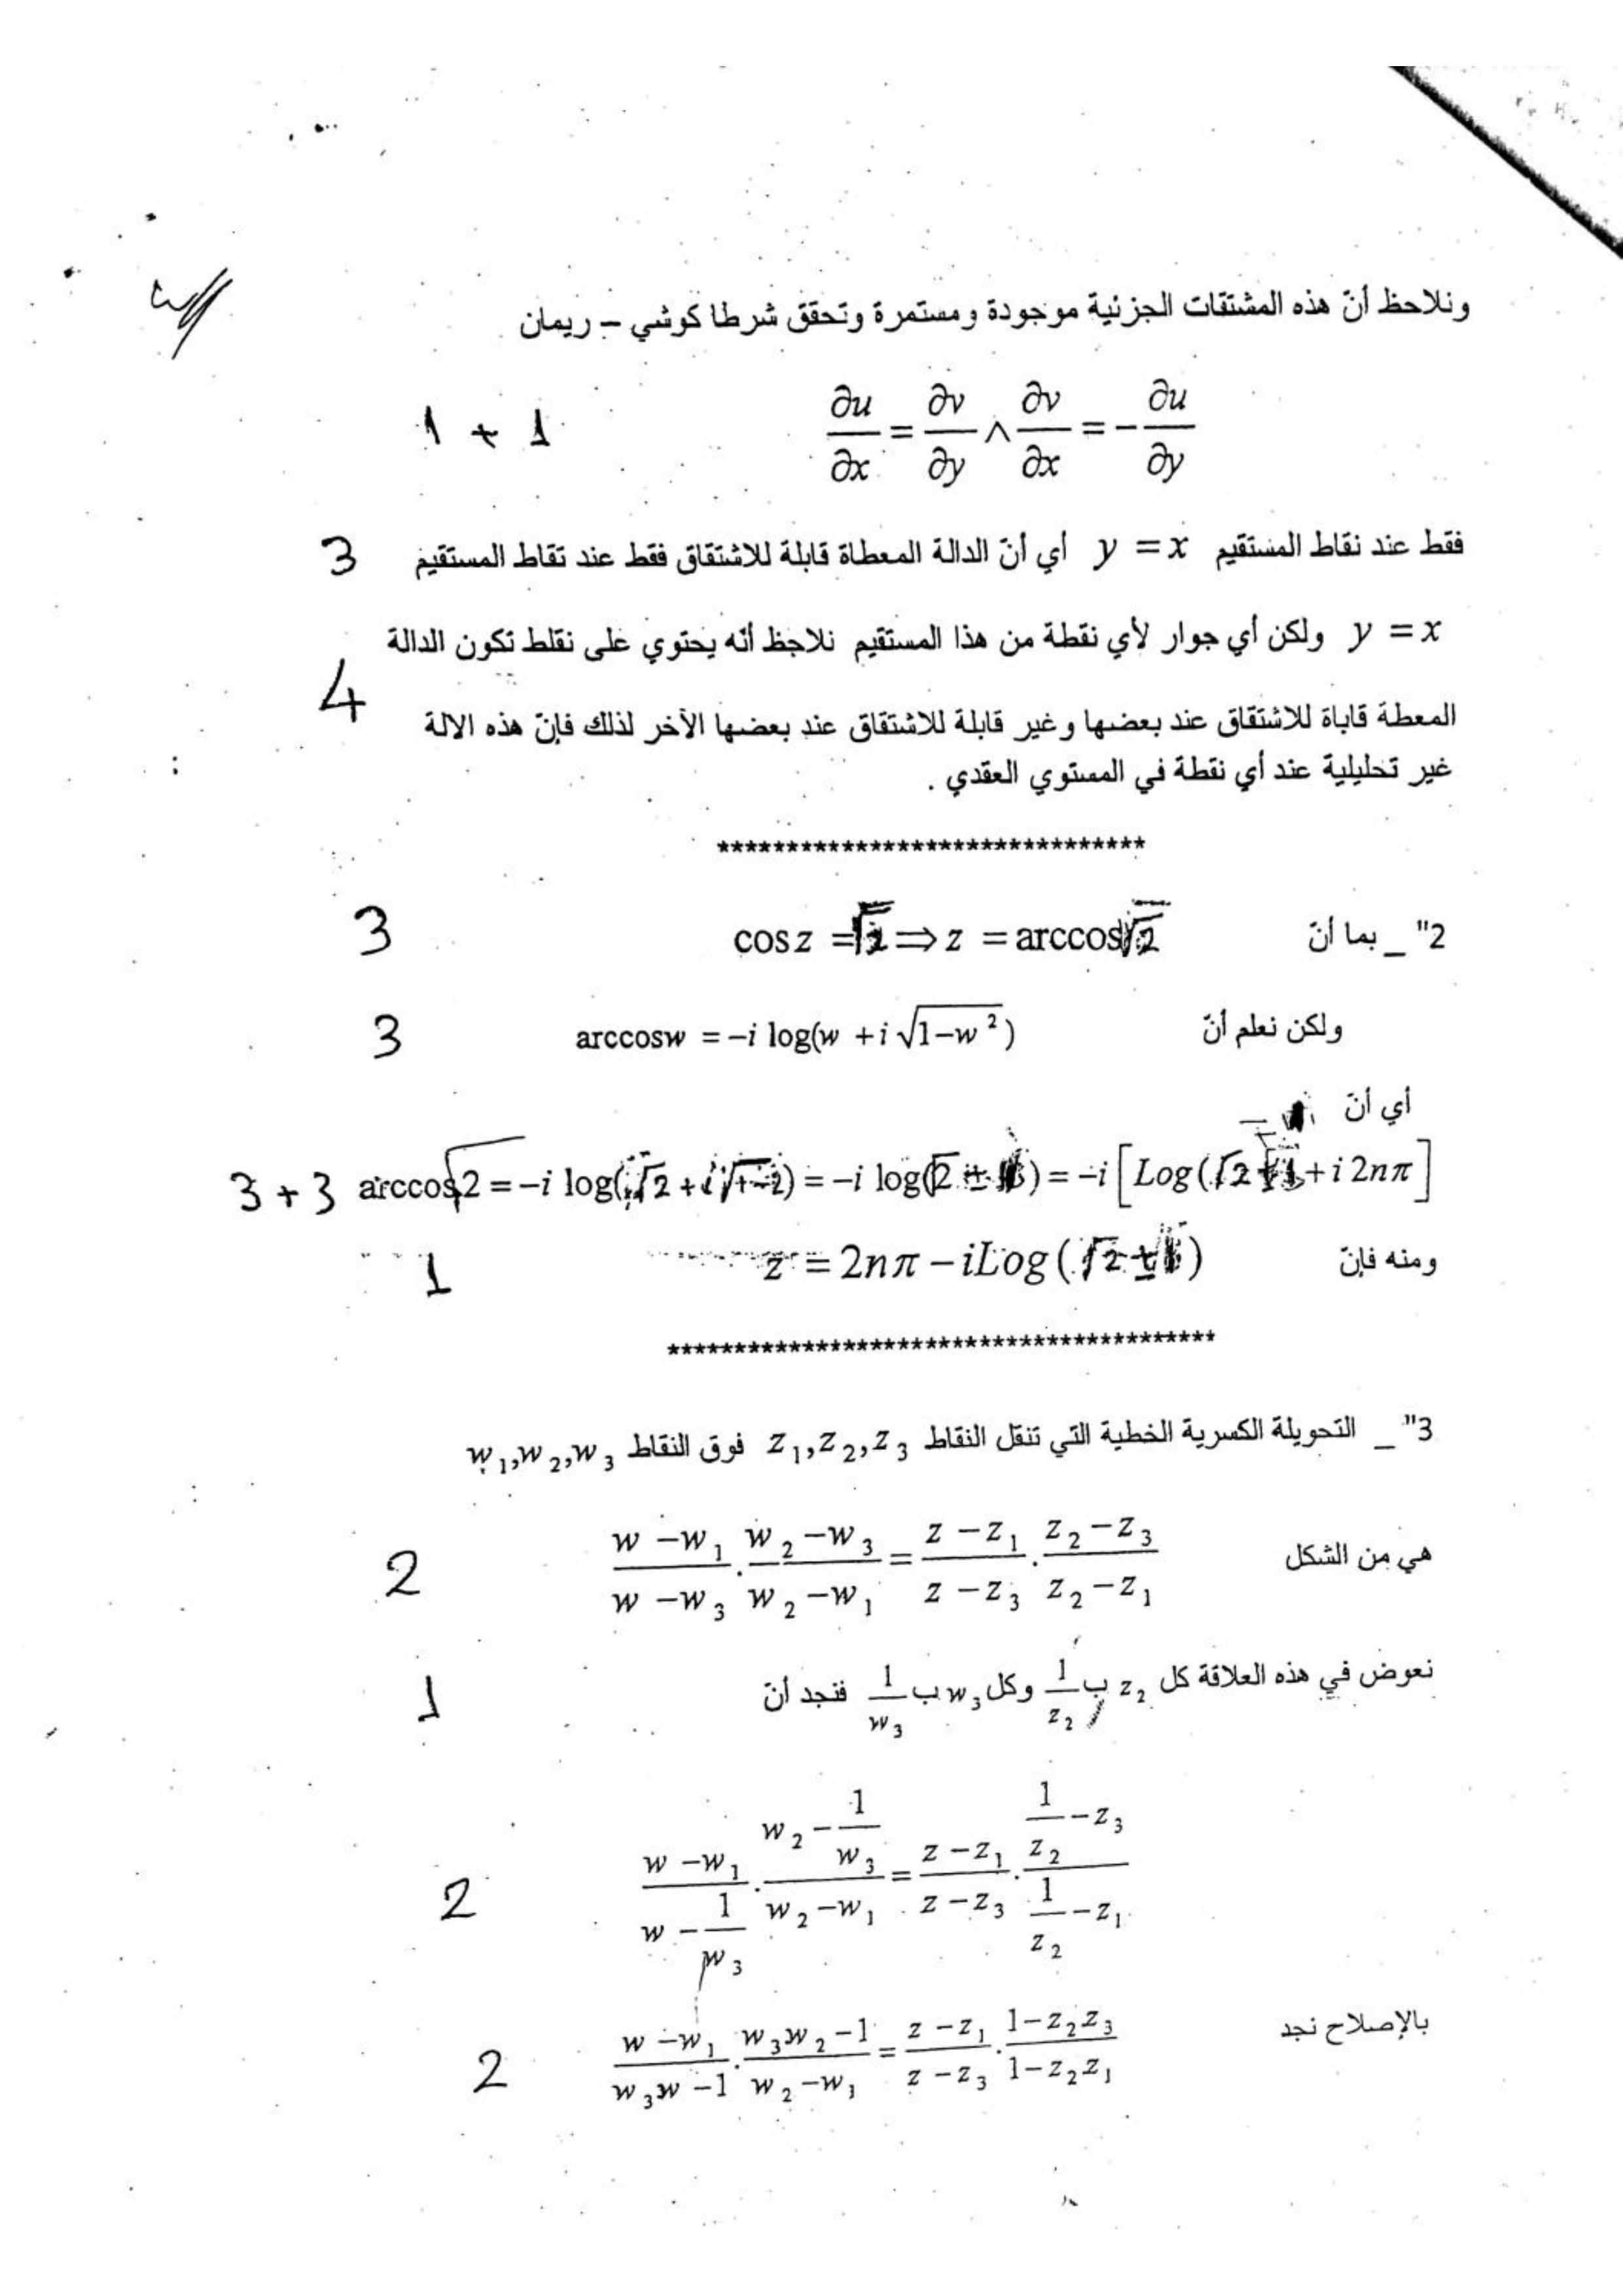 ونلاحظ أنّ هذه المشتقات الجزئية موجودة ومستمرة وتحقق شرطا كوشي – ريمان
∂u/∂x = ∂v/∂y ∧ ∂v/∂x = −∂u/∂y 1 + 1
فقط عند نقاط المستقيم y = x أي أنّ الدالة المعطاة قابلة للاشتقاق فقط عند تقاط المستقيم 3
y = x ولكن أي جوار لأي نقطة من هذا المستقيم نلاحظ أنّه يحتوي على نقلط تكون الدالة
المعطة قاباة للاشتقاق عند بعضها وغير قابلة للاشتقاق عند بعضها الآخر لذلك فإنّ هذه الالة 4
غير تحليلية عند أي نقطة في المستوي العقدي .
********************************
2"_ بما أنّ cos z = √2 ⇒ z = arccos √2 3
ولكن نعلم أنّ arccos w = −i log(w + i √(1−w²)) 3
أي أنّ
arccos √2 = −i log(√2 + i √(1−2)) = −i log(√2 ± 1) = −i [Log(√2 ± 1) + i 2nπ] 3 + 3
ومنه فإنّ z = 2nπ − iLog(√2 ± 1) 1
*****************************************
3"_ التحويلة الكسرية الخطية التي تنقل النقاط z₁,z₂,z₃ فوق النقاط w₁,w₂,w₃
هي من الشكل (w − w₁)/(w − w₃) . (w₂ − w₃)/(w₂ − w₁) = (z − z₁)/(z − z₃) . (z₂ − z₃)/(z₂ − z₁) 2
نعوض في هذه العلاقة كل z₂ ب 1/z₂ وكل w₃ ب 1/w₃ فنجد أنّ 1
(w − w₁)/(w − 1/w₃) . (w₂ − 1/w₃)/(w₂ − w₁) = (z − z₁)/(z − z₃) . (1/z₂ − z₃)/(1/z₂ − z₁) 2
بالإصلاح نجد (w − w₁)/(w₃w − 1) . (w₃w₂ − 1)/(w₂ − w₁) = (z − z₁)/(z − z₃) . (1 − z₂z₃)/(1 − z₂z₁) 2